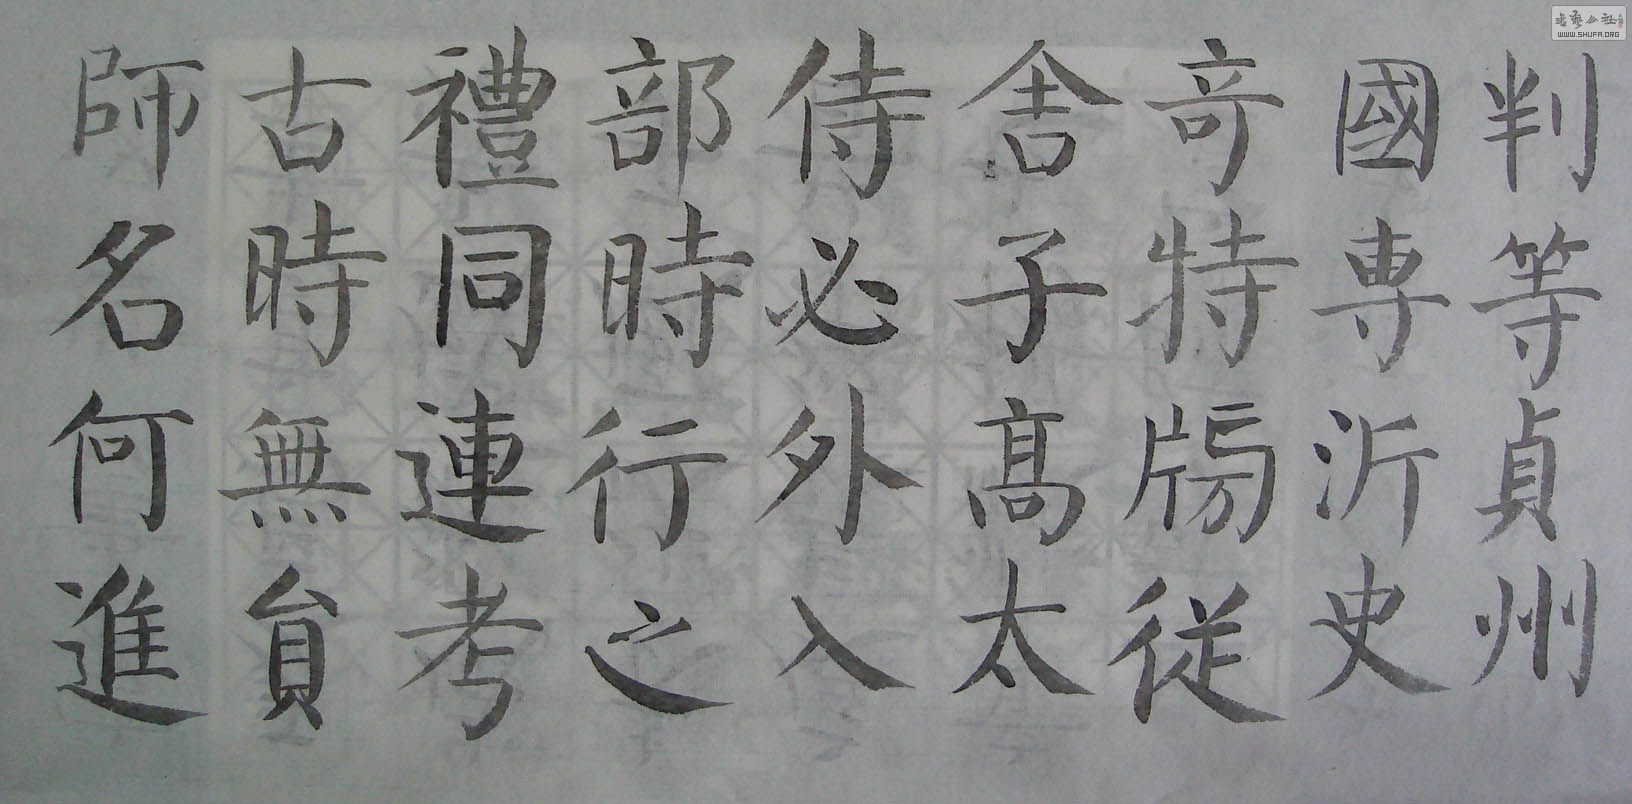 判等貞州
國専沂史
竒特牓従
舎子髙太
侍必外入
部時行之
禮同連考
古時無貟
師名何進
書藝公社
WWW.SHUFA.ORG